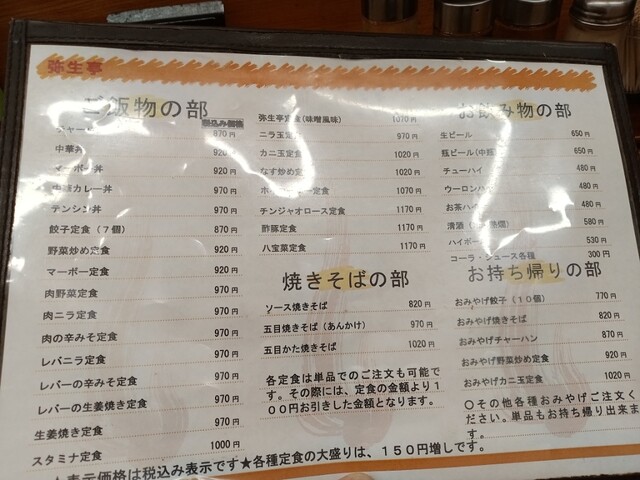 弥生亭
ご飯物の部
税込み価格
チャーハン 870円
中華丼 920円
マーボー丼 920円
中華カレー丼 970円
テンシン丼 970円
餃子定食(7個) 870円
野菜炒め定食 920円
マーボー定食 920円
肉野菜定食 970円
肉ニラ定食 970円
肉の辛みそ定食 970円
レバニラ定食 970円
レバーの辛みそ定食 970円
レバーの生姜焼き定食 970円
生姜焼き定食 970円
スタミナ定食 1000円
弥生亭定食(味噌風味) 1070円
ニラ玉定食 970円
カニ玉定食 1020円
なす炒め定食 1020円
定食 1070円
チンジャオロース定食 1170円
酢豚定食 1170円
八宝菜定食 1170円
焼きそばの部
ソース焼きそば 820円
五目焼きそば(あんかけ) 970円
五目かた焼きそば 1020円
各定食は単品でのご注文も可能で
す。その際には、定食の金額より1
00円お引きした金額となります。
お飲み物の部
生ビール 650円
瓶ビール(中瓶) 650円
チューハイ 480円
ウーロンハイ 480円
お茶ハイ 480円
清酒 580円
ハイボール 530円
コーラ・ジュース各種 300円
お持ち帰りの部
おみやげ餃子(10個) 770円
おみやげ焼きそば 820円
おみやげチャーハン 870円
おみやげ野菜炒め定食 920円
おみやげカニ玉定食 1020円
〇その他各種おみやげご注文くだ
さい。単品もお持ち帰り出来ま
す。
★表示価格は税込み表示です★各種定食の大盛りは、150円増しです。